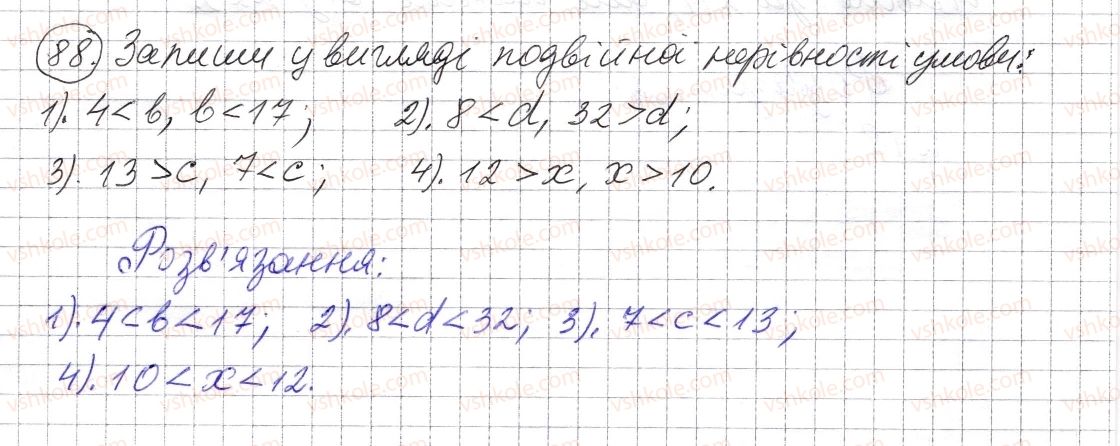 88. Запиши у вигляді подвійної нерівності умови:
1). 4 < b, b < 17; 2). 8 < d, 32 > d;
3). 13 > c, 7 < c; 4). 12 > x, x > 10.
Розв'язання:
1). 4 < b < 17; 2). 8 < d < 32; 3). 7 < c < 13;
4). 10 < x < 12.